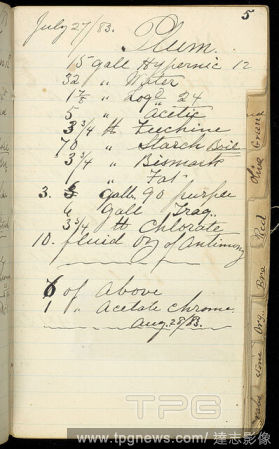 5
July 27/83.
Plum.
15 gall Hypernic 12
32 " Water
1 7/8 " Logd 24
5 " Acetic
3 3/4 lb Fuchine
70 " Starch Boil
3 3/4 " Bismark
1 " Fat
3. galls 90 purpee
6 gall Trag.
3 3/4 lb Chlorate
10. fluid oz of Antimony
6 of Above
1 " Acetate Chrome
Aug. 28/83.
Olive Green
Red
TPG
www.tpgnews.com/ 達志影像